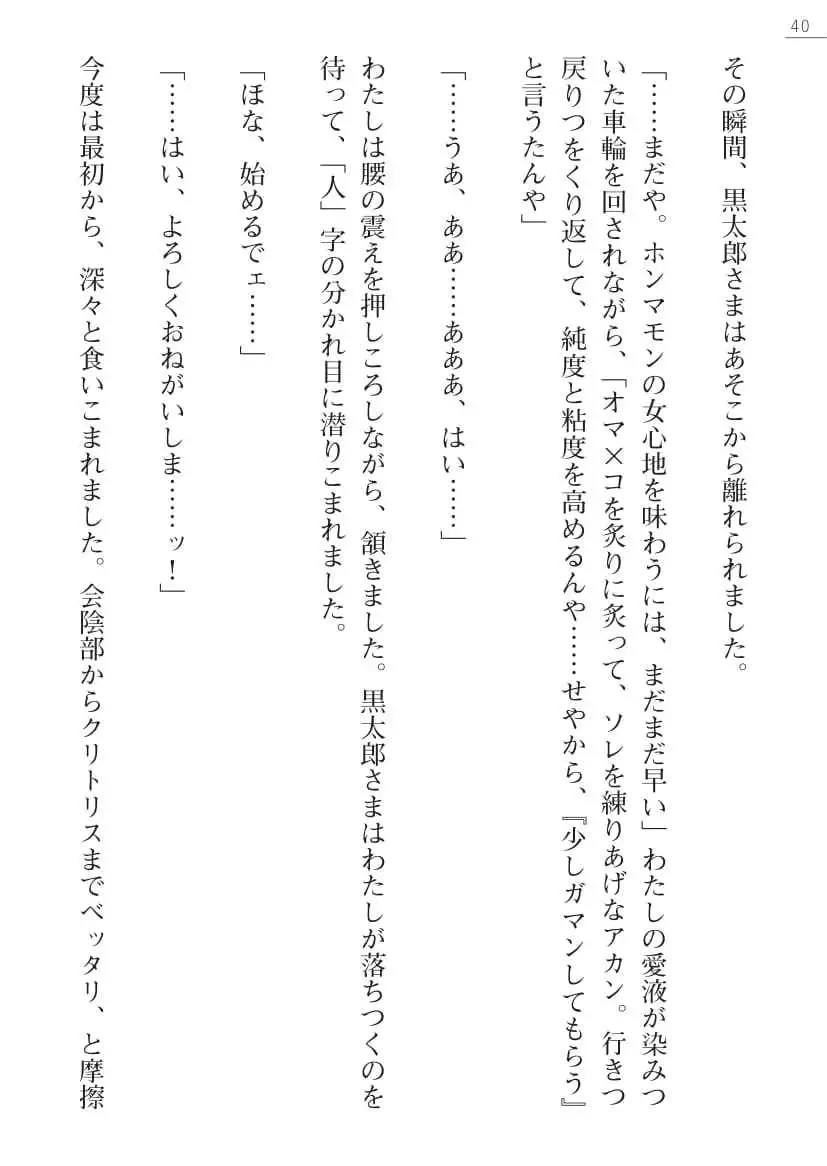 40
その瞬間、黒太郎さまはあそこから離れられました。
「……まだや。ホンマモンの女心地を味わうには、まだまだ早い」わたしの愛液が染みつ
いた車輪を回されながら、「オマ×コを炙りに炙って、ソレを練りあげなアカン。行きつ
戻りつをくり返して、純度と粘度を高めるんや……せやから、『少しガマンしてもらう』
と言うたんや」
「……うぁ、ぁあ……あああ、はい……」
わたしは腰の震えを押しころしながら、頷きました。黒太郎さまはわたしが落ちつくのを
待って、「人」字の分かれ目に潜りこまれました。
「ほな、始めるでェ……」
「……はい、よろしくおねがいしま……ッ！」
今度は最初から、深々と食いこまれました。会陰部からクリトリスまでベッタリ、と摩擦